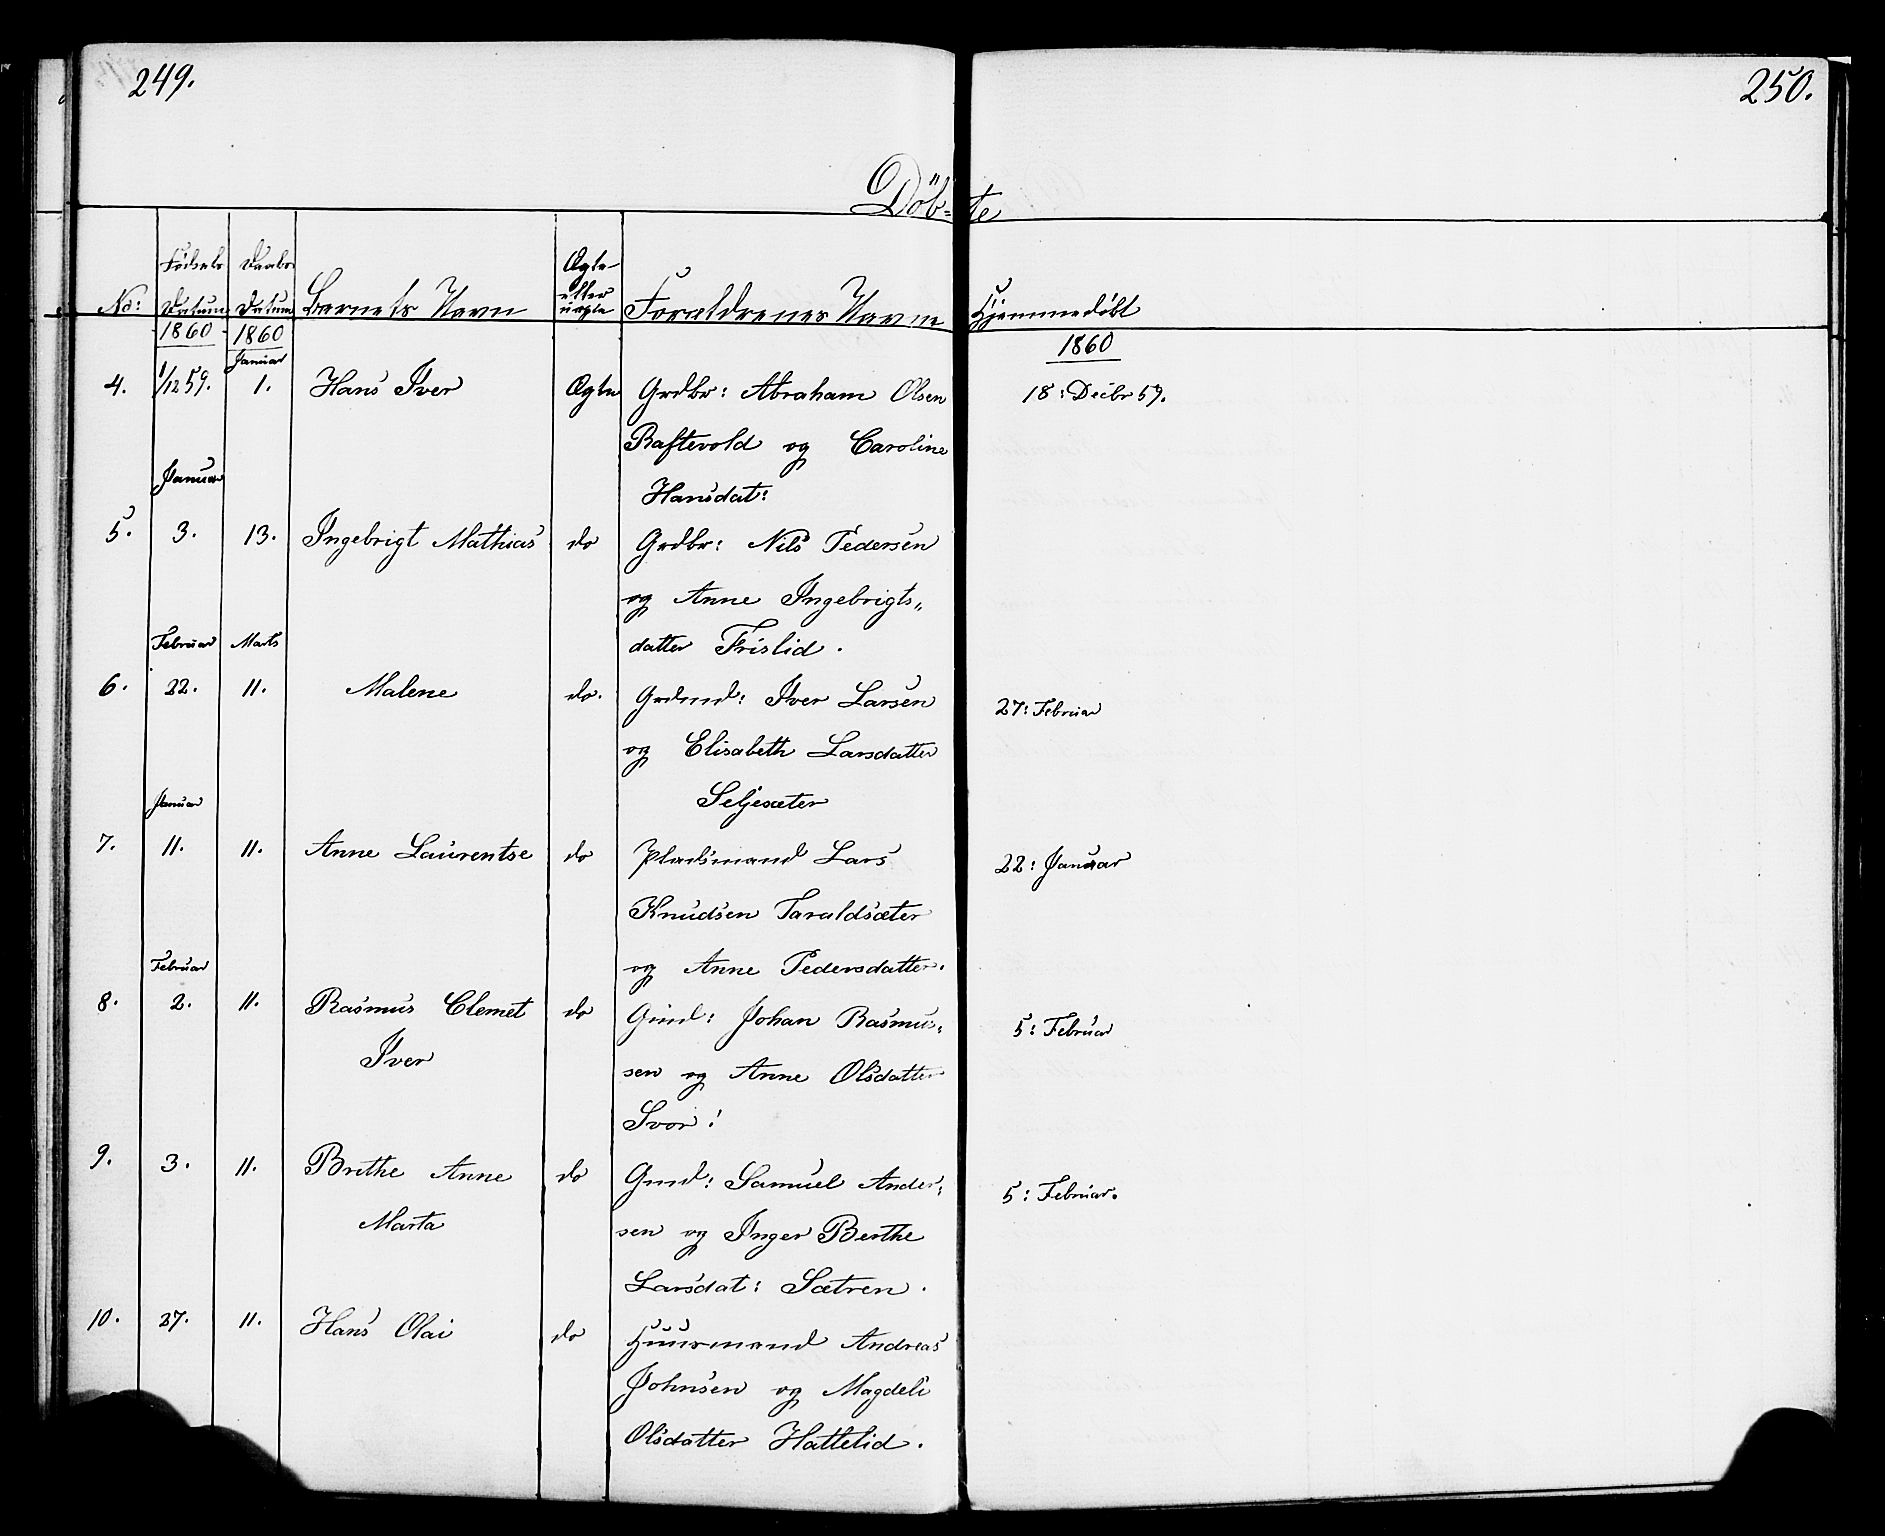 249.
250.
Döb-te
No:
Födsels Datum
Daabs Datum
Barnets Navn
Ægte eller uægte
Forældrenes Navne
Hjemmedöbt
1860 1860 1860
Januar
4. 1/12 59. 1. Hans Iver Ægte Grdbr: Abraham Olsen 18: Decbr 59.
Raftevold og Caroline
Januar
Hansdat:
5. 3. 13. Ingebrigt Mathias do Grdbr: Nils Pedersen
og Anne Ingebrigts„
Februar Marts
datter Frislid.
6. 22. 11. Malene do. Grdmd: Iver Larsen 27: Februar
og Elisabeth Larsdatter
Januar
Seljesæter
7. 11. 11. Anne Laurentse do Pladsmand Lars 22: Januar
Knudsen Taraldsæter
Februar
og Anne Pedersdatter.
8. 2. 11. Rasmus Clemet do Gmd: Johan Rasmus- 5: Februar
Iver
sen og Anne Olsdatter
Svor.
9. 3. 11. Brithe Anne do Gmd: Samuel Ander- 5: Februar.
Marta
sen og Inger Berthe
Larsdat: Sætren.
10. 27. 11. Hans Olai do Huusmand Andreas
Johnsen og Magdeli
Olsdatter Hattelid.